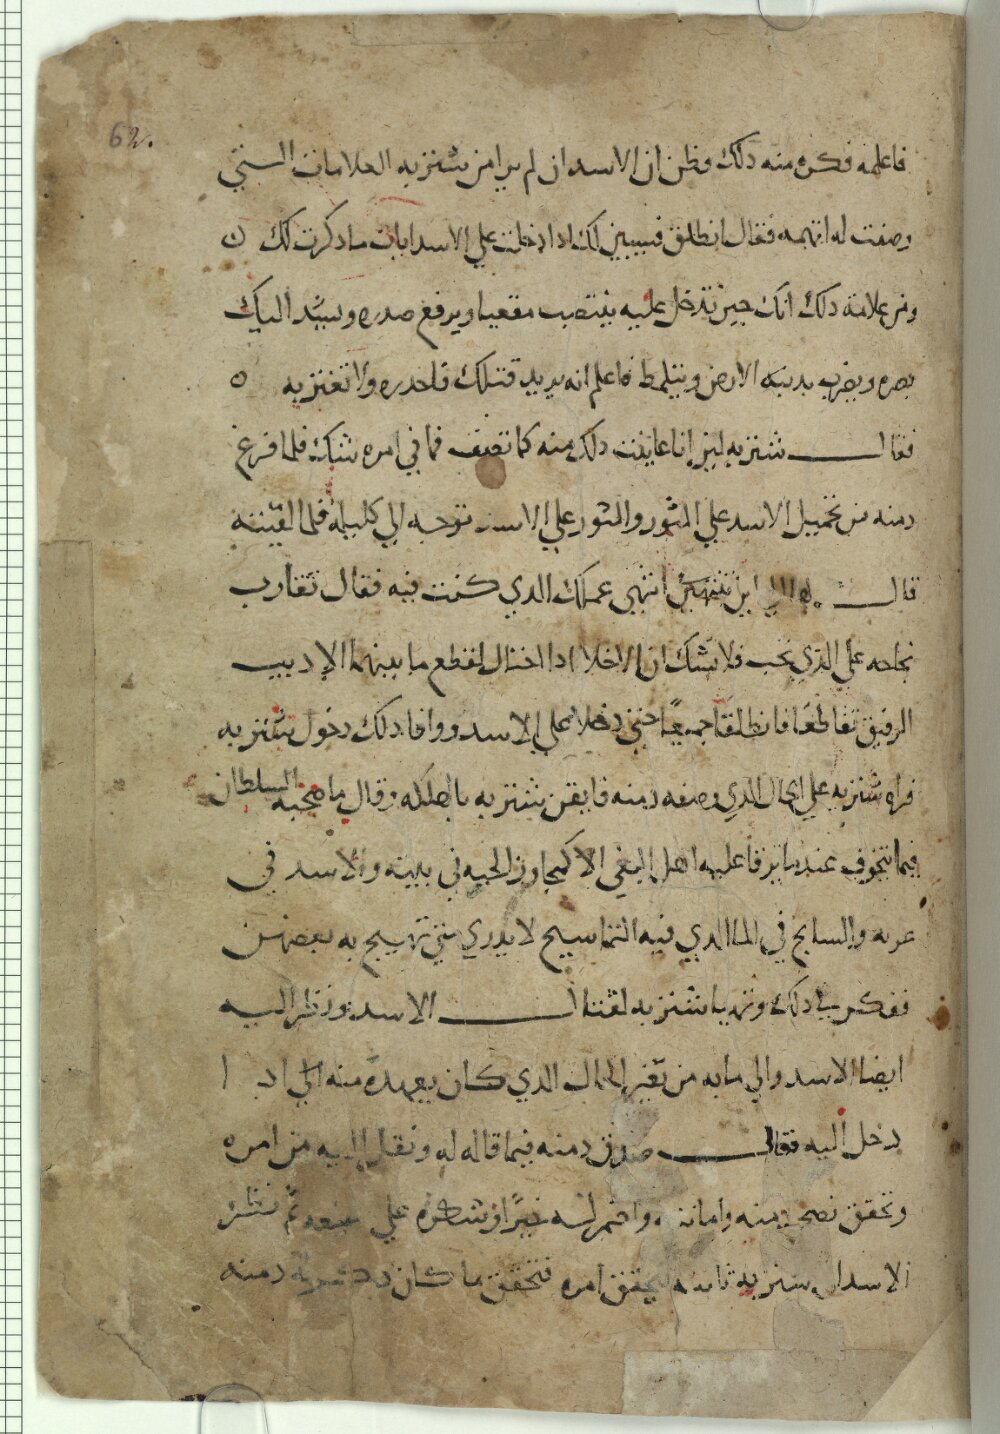 62.
فاعلمه فكره منه دلك وظن ان الاسد ان لم يرا من شنزبه العلامات التي
وصفت له اتهمه فقال انطلق فسيبين لك ادا دخلت علي الاسد ايات ما دكرت لك ٥
ومن علامة دلك انك حين تدخل عليه ينتصب مقعيا ويرفع صدره ويشد اليك
بصره ويضرب بدنبه الارض ويتلمظ فاعلم انه يريد قتلك فاحدره ولا تغتر به ٥
فقال شنزبه لين انا عاينت دلك منه كما تصف فما في امره شك فلما فرغ
دمنه من تحميل الاسد علي الثور والثور علي الاسد توجه الي كليله فلما التقيا
قال له الي اين انتهي عملك الدي كنت فيه فقال تقارب
نجاحه علي الدي تحب فلا تشك ان الاخلا ادا احتال لقطع ما بينهما الاديب
الرفيق تقاطعا فانطلقا جميعًا حتي دخلا علي الاسد ووافا دلك دخول شنزبه
فراه شنزبه علي الحال الدي وصفه دمنه فايقن شنزبه بالهلكه وقال ما صحبه السلطان
فيما يتخوف عندما يرقا عليه اهل البغي الا كمجاور الحيه في بيته والاسد في
عرنه والسابح في الما الدي فيه التماسيح لا يدري متي تهيج به بعضهن
ففكر في دلك وتهيا شنزبه لقتال الاسد ونظر اليه
ايضا الاسد والي ما به من تغير الحال الدي كان يعهده منه الي اد ا
دخل اليه فقال صدق دمنه فيما قاله له ونقل اليه من امره
وتحقق نصح دمنه وامانته واضمر له خيرًا وشكره علي ثم نظر
الاسد الي شنزبه ليحقق امره فتحقق ما كان دمنه